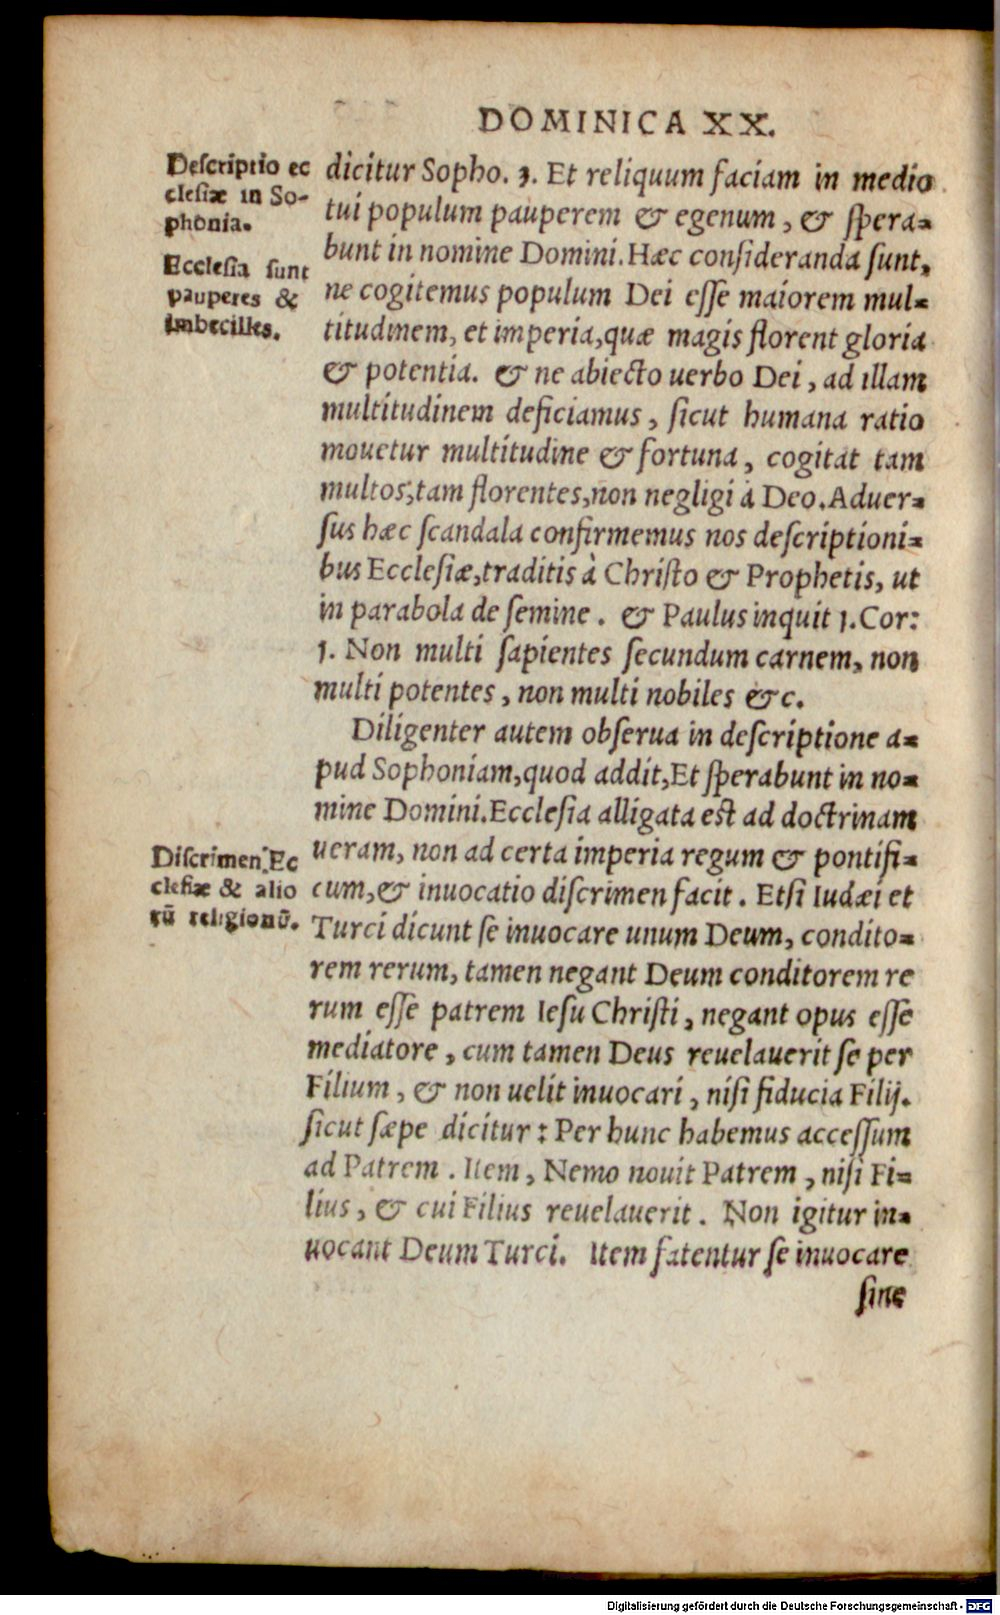 DOMINICA XX.
Descriptio ec
clesiæ in So-
phonia.
Ecclesia sunt
pauperes &
imbecilles.
dicitur Sopho. 3. Et reliquum faciam in medio
tui populum pauperem & egenum, & spera=
bunt in nomine Domini. Hæc consideranda sunt,
ne cogitemus populum Dei esse maiorem mul=
titudinem, et imperia, quæ magis florent gloria
& potentia. & ne abiecto uerbo Dei, ad illam
multitudinem deficiamus, sicut humana ratio
mouetur multitudine & fortuna, cogitat tam
multos, tam florentes, non negligi à Deo. Aduer=
sus hæc scandala confirmemus nos descriptioni=
bus Ecclesiæ, traditis à Christo & Prophetis, ut
in parabola de semine. & Paulus inquit 1. Cor:
1. Non multi sapientes secundum carnem, non
multi potentes, non multi nobiles &c.
Diligenter autem obserua in descriptione a=
pud Sophoniam, quod addit, Et sperabunt in no=
mine Domini. Ecclesia alligata est ad doctrinam
ueram, non ad certa imperia regum & pontifi=
cum, & inuocatio discrimen facit. Etsi Iudæi et
Turci dicunt se inuocare unum Deum, condito=
rem rerum, tamen negant Deum conditorem re
rum esse patrem Iesu Christi, negant opus esse
mediatore, cum tamen Deus reuelauerit se per
Filium, & non uelit inuocari, nisi fiducia Filij.
sicut sæpe dicitur: Per hunc habemus accessum
ad Patrem. Item, Nemo nouit Patrem, nisi Fi=
lius, & cui Filius reuelauerit. Non igitur in=
uocant Deum Turci. Item fatentur se inuocare
sine
Discrimen Ec
clesiæ & alio
rũ religionũ.
Digitalisierung gefördert durch die Deutsche Forschungsgemeinschaft - DFG